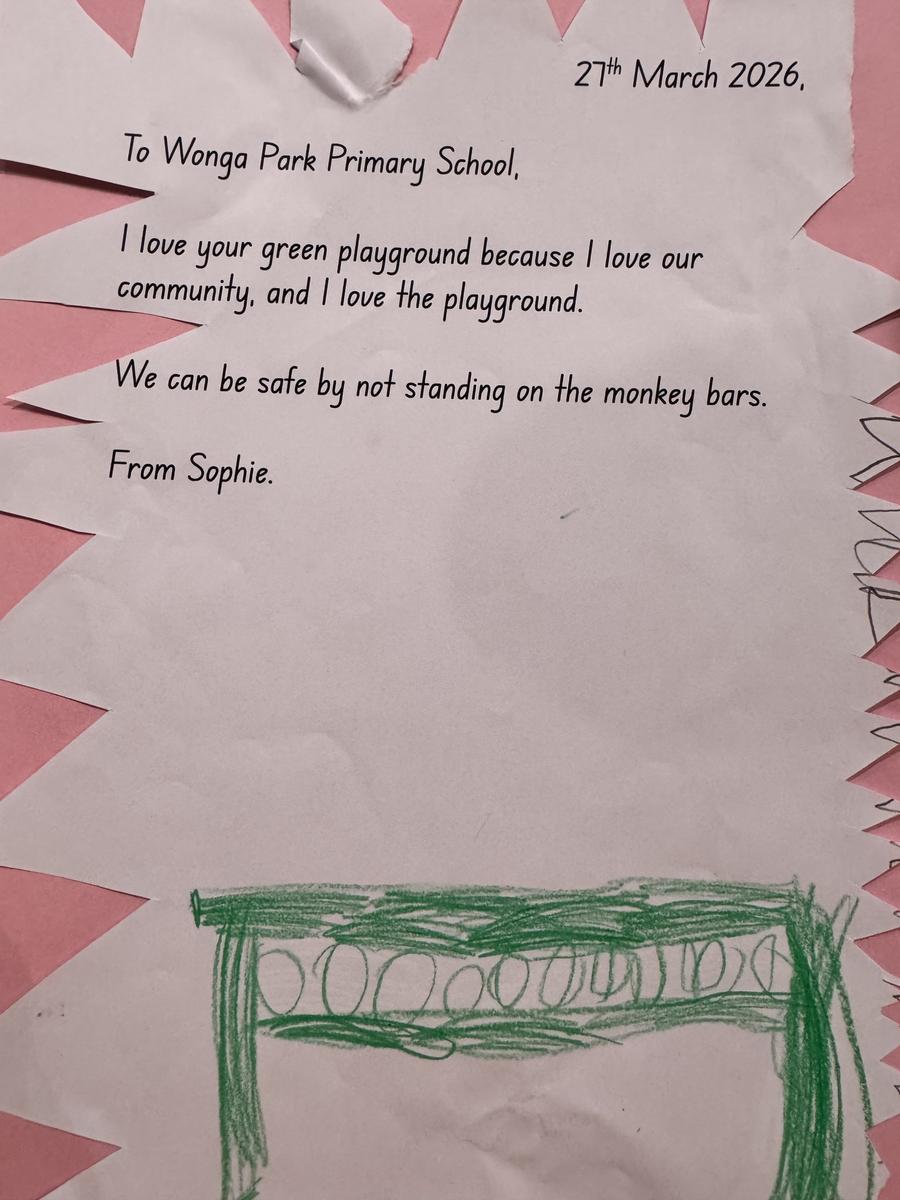 27th March 2026,
To Wonga Park Primary School,
I love your green playground because I love our
community, and I love the playground.
We can be safe by not standing on the monkey bars.
From Sophie.